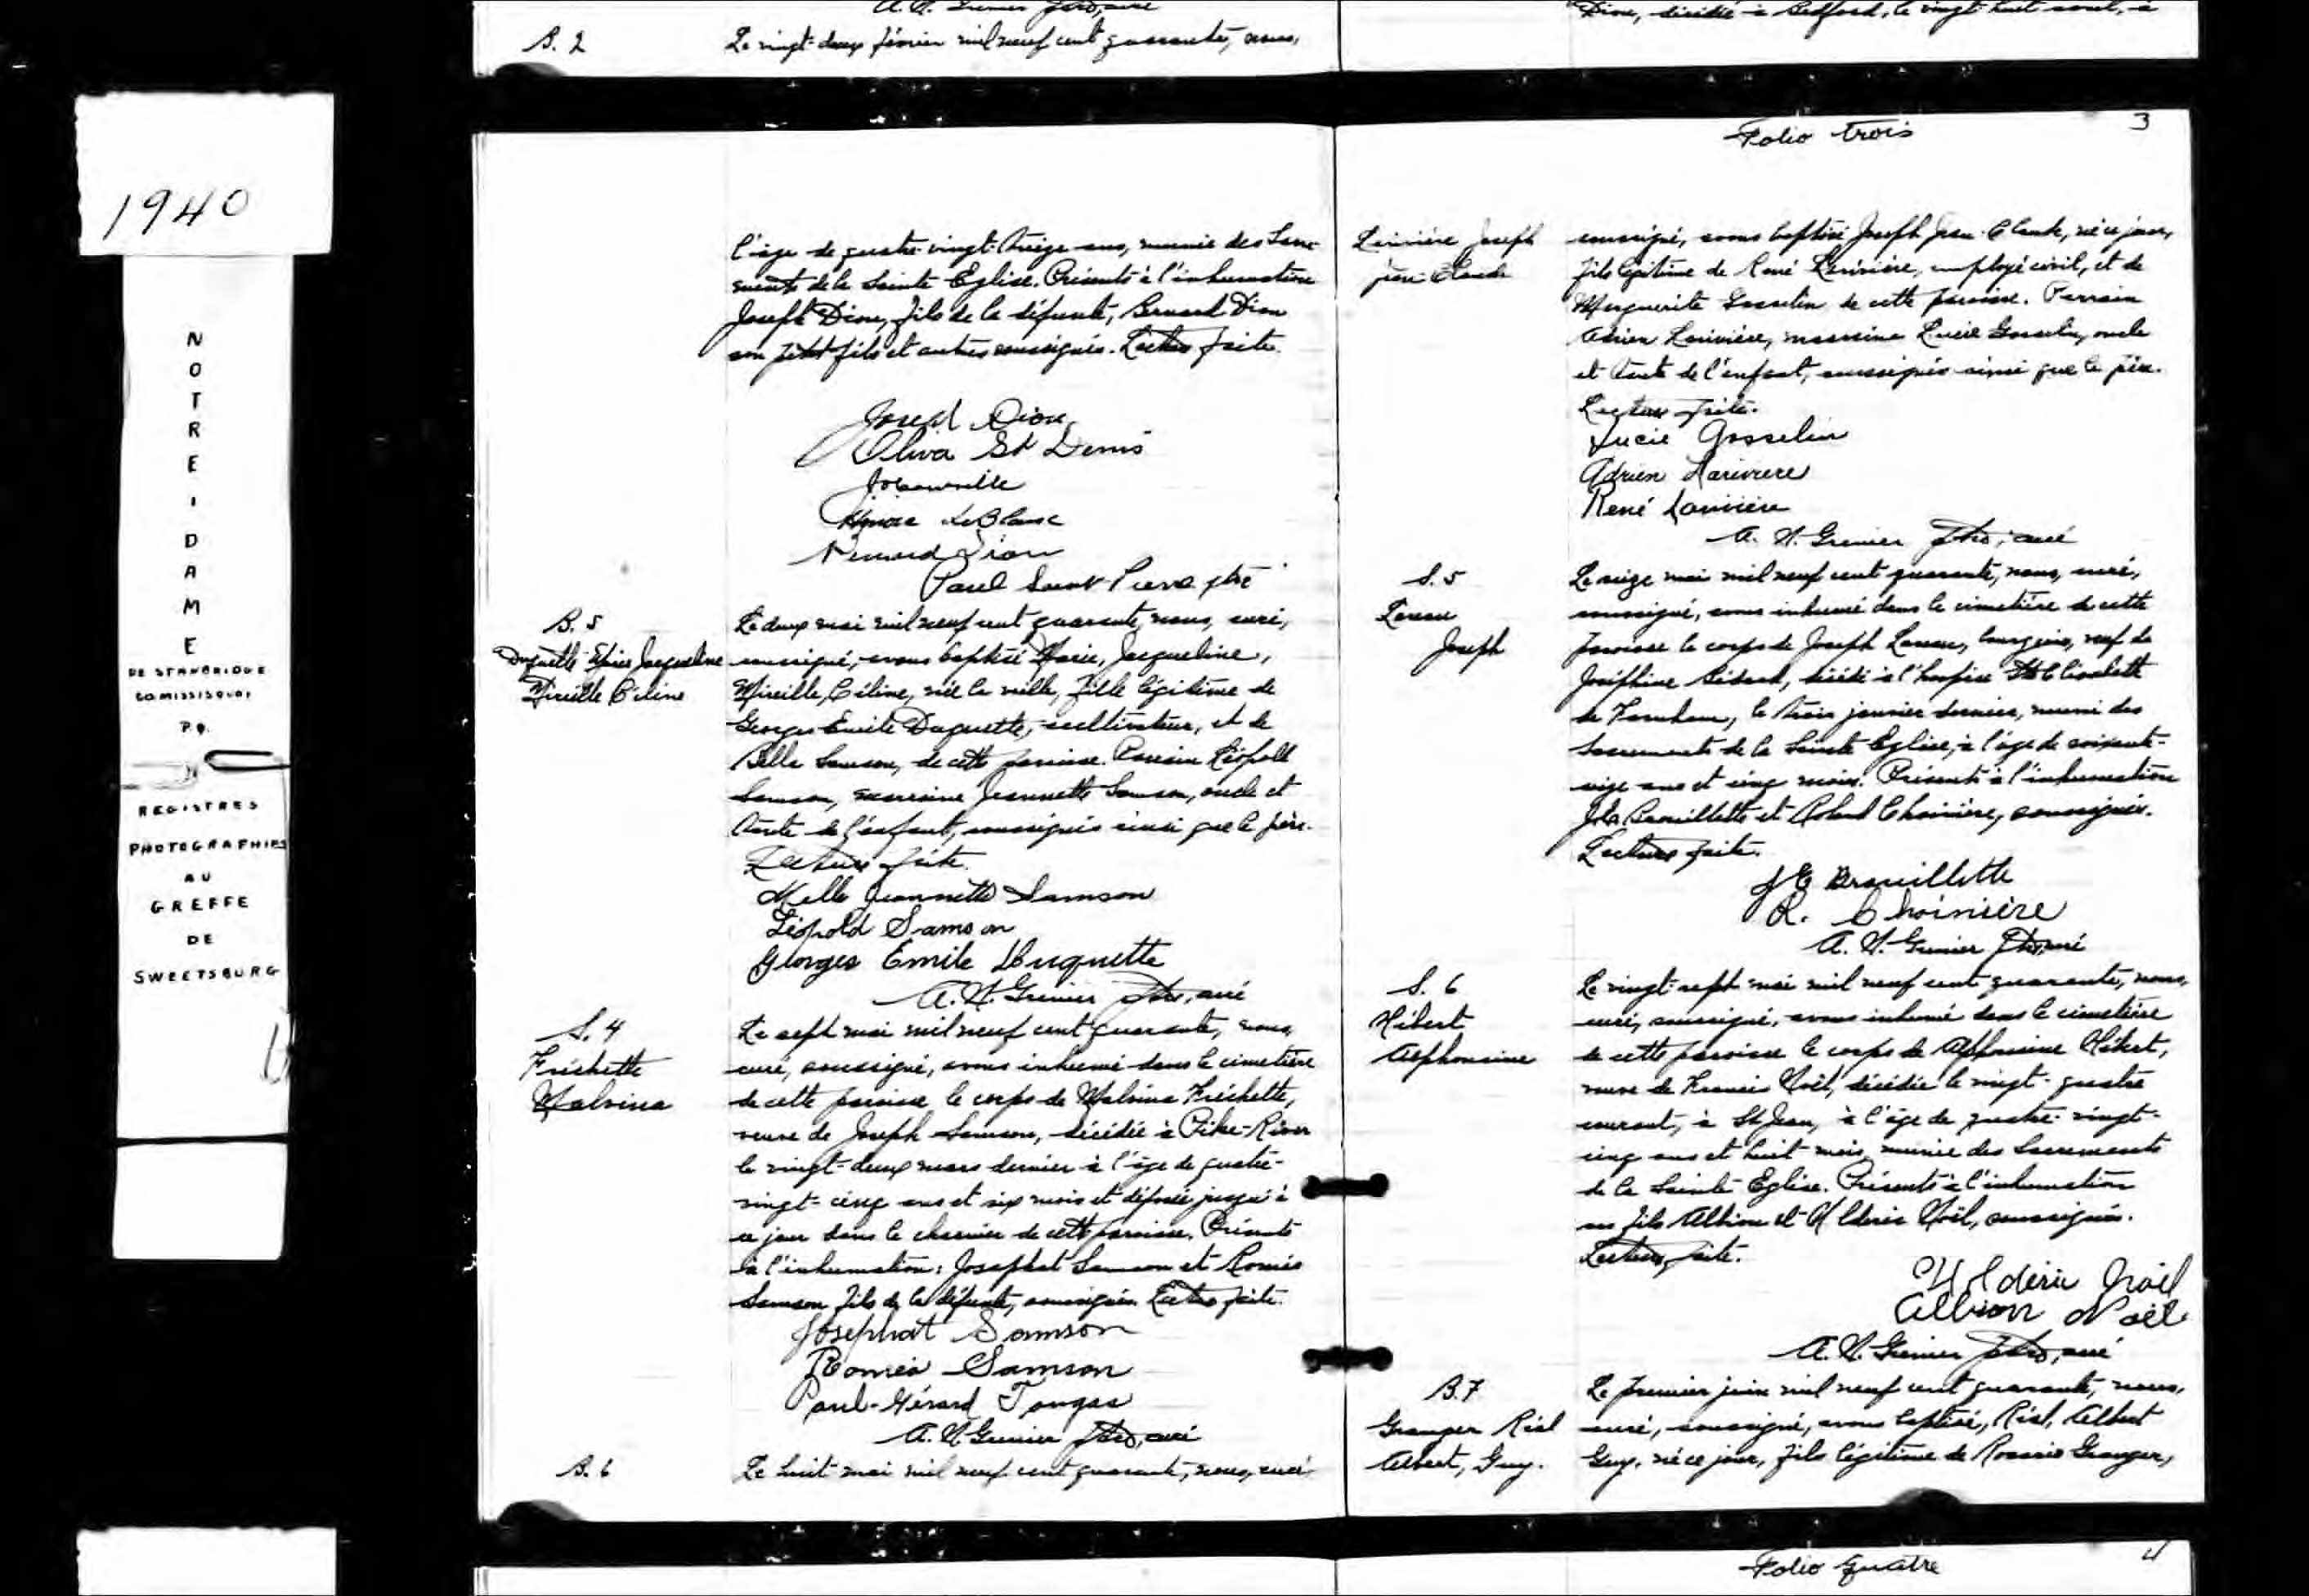 1940
N
O
T
R
E
-
D
A
M
E
DE STANBRIDGE
Co MISSISQUOI
P.Q.
REGISTRES
PHOTOGRAPHIES
AU
GREFFE
DE
SWEETSBURG
B. 2
Le vingt-deux février mil neuf cent quarante, nous,
Dion, décédée à Bedford, le vingt-huit avril, à
l'âge de quatre-vingt-treize ans, munie des Sacre-
ments de la Sainte Eglise. Présents à l'inhumation
Joseph Dion, fils de la défunte, Bernard Dion
son petit-fils et autres soussignés. Lecture faite.
Joseph Dion
Oliva St Denis
LeBlanc
Bernard Dion
Paul Saint-Pierre ptre
B. 5
Duquette Marie Jacqueline
Mireille Céline
Le deux mai mil neuf cent quarante, nous, curé,
soussigné, avons baptisé Marie, Jacqueline,
Mireille, Céline, née la veille, fille légitime de
Georges Emile Duquette, cultivateur, et de
Bella Samson, de cette paroisse. Parrain Léopold
Samson, marraine Jeannette Samson, oncle et
tante de l'enfant, soussignés ainsi que le père.
Lecture faite.
Melle Jeannette Samson
Léopold Samson
Georges Emile Duquette
A. N. Grenier ptre, curé
S. 4
Fréchette
Malvina
Le sept mai mil neuf cent quarante, nous,
curé, soussigné, avons inhumé dans le cimetière
de cette paroisse le corps de Malvina Fréchette,
veuve de Joseph Samson, décédée à Pike-River
le vingt-deux mars dernier à l'âge de quatre-
vingt-cinq ans et six mois et déposé jusqu'à
ce jour dans le charnier de cette paroisse. Présents
à l'inhumation: Josephat Samson et Roméo
Samson fils de la défunte, soussignés. Lecture faite.
Josephat Samson
Roméo Samson
Paul-Gérard Tougas
A. N. Grenier ptre, curé
B. 6
Le huit mai mil neuf cent quarante, nous, curé
Folio trois
3
Larivière Joseph
Jean-Claude
soussigné, avons baptisé Joseph Jean-Claude, né ce jour,
fils légitime de René Larivière, employé civil, et de
Marguerite Gosselin de cette paroisse. Parrain
Adrien Larivière, marraine Lucie Gosselin, oncle
et tante de l'enfant, soussignés ainsi que le père.
Lecture faite.
Lucie Gosselin
Adrien Lariviere
René Larivière
A. N. Grenier ptre, curé
S. 5
Joseph
Le seize mai mil neuf cent quarante, nous, curé,
soussigné, avons inhumé dans le cimetière de cette
paroisse le corps de Joseph bourgeois, veuf de
Joséphine Bédard, décédé à l'hospice Ste Elisabeth
de Farnham, le trois janvier dernier, muni des
Sacrements de la Sainte Eglise, à l'âge de soixante-
seize ans et cinq mois. Présents à l'inhumation
Brouillette et Roland Choinière, soussignés.
Lecture faite.
J E Brouillette
R. Choinière
A. N. Grenier ptre, curé
S. 6
Hébert
Alphonsine
Le vingt-sept mai mil neuf cent quarante, nous,
curé, soussigné, avons inhumé dans le cimetière
de cette paroisse le corps de Alphonsine Hébert,
veuve de Francis Noël, décédée le vingt-quatre
courant, à St Jean, à l'âge de quatre-vingt-
cinq ans et huit mois, munie des Sacrements
de la Sainte Eglise. Présents à l'inhumation
ses fils Albion et Ulderic Noël, soussignés.
Lecture faite.
Ulderic Noël
Albion Noël
A. N. Grenier ptre, curé
B. 7
Granger Réal
Albert, Guy.
Le premier juin mil neuf cent quarante, nous,
curé, soussigné, avons baptisé, Réal, Albert
Guy, né ce jour, fils légitime de Rosario Granger,
Folio quatre
4